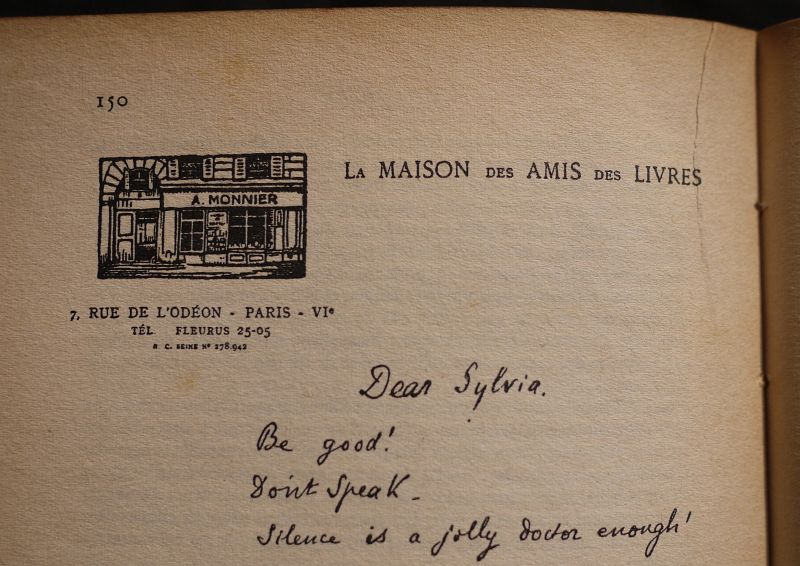 150
A. MONNIER
LA MAISON DES AMIS DES LIVRES
7, RUE DE L'ODÉON - PARIS - VIe
TÉL. FLEURUS 25-05
R. C. SEINE No 278.942
Dear Sylvia.
Be good!
Don't Speak -
Silence is a jolly doctor enough!